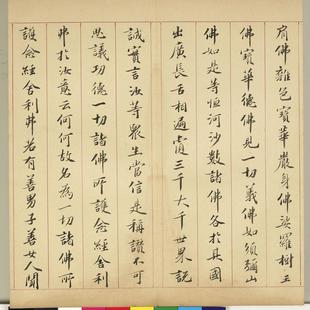 肩佛雜色寶華嚴身佛娑羅樹王
佛寶華德佛見一切義佛如須彌山
佛如是等恒河沙數諸佛各於其國
出廣長舌相遍覆三千大千世界說
誠實言汝等衆生當信是稱讚不可
思議功德一切諸佛所護念經舍利
弗於汝意云何何故名為一切諸佛所
護念經舍利弗若有善男子善女人聞